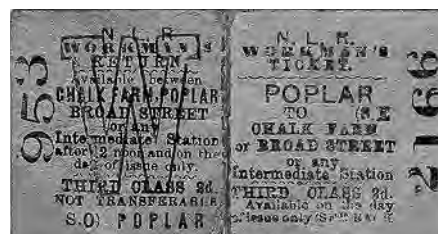 953
N. L. R.
WORKMAN'S
RETURN
Available between
CHALK FARM, POPLAR
BROAD STREET
or any
Intermediate Station
after 12 noon and on the
day of issue only.
THIRD CLASS 2d.
NOT TRANSFERABLE
S.O) POPLAR
N. L. R.
WORKMAN'S
TICKET.
POPLAR
TO (S.E
CHALK FARM
or BROAD STREET
or any
Intermediate Station
THIRD CLASS 2d.
Available on the day
of issue only
2166